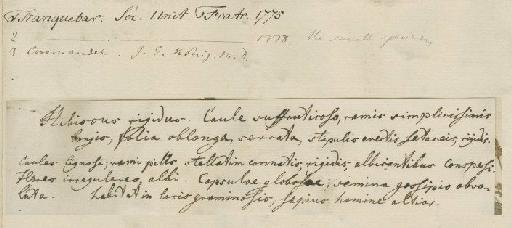 1 Tranquebar. Soc. Unit. Fratr. 1775
2 — 1778 the small specimen
3 Coromandel. J. G. König. M.D.
Hibiscus rigidus. Caule suffruticoso, ramis simplicissimis
longis, folia oblonga, serrata, stipulis erectis, setaceis, rigidis.
Caules lignosi, rami pilis stellatim connatis, rigidis, albicantibus conspersi.
Flores irregulares, albi. Capsulae globosae, semina gossipio obvo-
luta. habitat in locis graminosis, saepius homine altior.